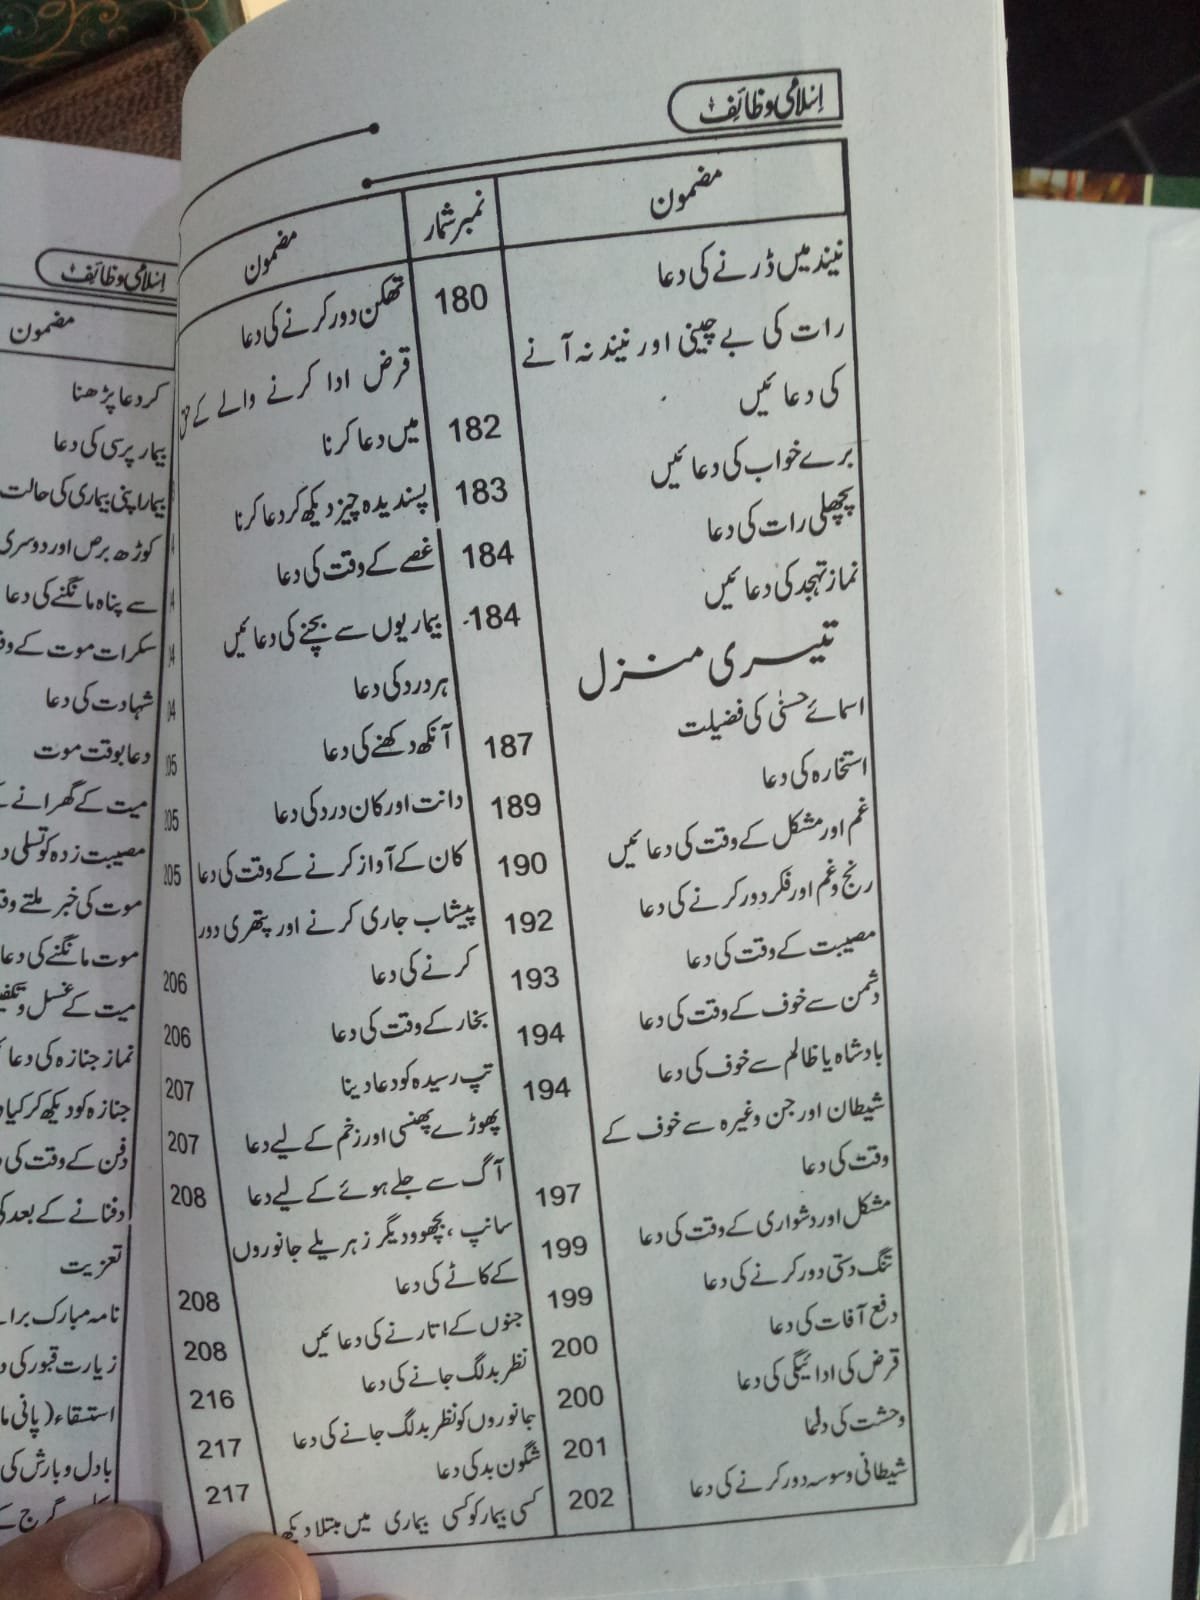 اسلامی وظائف
مضمون
نمبر شمار
مضمون
نیند میں ڈرنے کی دعا
180
رات کی بے چینی اور نیند نہ آنے
کی دعائیں
182
برے خواب کی دعائیں
183
پچھلی رات کی دعا
184
نماز تہجد کی دعائیں
184
تیسری منزل
اسمائے حسنٰی کی فضیلت
187
استخارہ کی دعا
189
غم اور مشکل کے وقت کی دعائیں
190
رنج وغم اور فکر دور کرنے کی دعا
192
مصیبت کے وقت کی دعا
193
دشمن سے خوف کے وقت کی دعا
194
بادشاہ یا ظالم سے خوف کی دعا
194
شیطان اور جن وغیرہ سے خوف کے
وقت کی دعا
197
مشکل اور دشواری کے وقت کی دعا
199
تنگ دستی دور کرنے کی دعا
199
دفع آفات کی دعا
200
قرض کی ادائیگی کی دعا
200
وحشت کی دعا
201
شیطانی وسوسہ دور کرنے کی دعا
202
تھکن دور کرنے کی دعا
قرض ادا کرنے والے کے حق
میں دعا کرنا
پسندیدہ چیز دیکھ کر دعا کرنا
غصے کے وقت کی دعا
بیماریوں سے بچنے کی دعائیں
ہر درد کی دعا
آنکھ دکھنے کی دعا
دانت اور کان درد کی دعا
205
کان کے آواز کرنے کے وقت کی دعا
205
پیشاب جاری کرنے اور پتھری دور
کرنے کی دعا
206
بخار کے وقت کی دعا
206
تپ رسیدہ کو دعا دینا
207
پھوڑے پھنسی اور زخم کے لیے دعا
207
آگ سے جلے ہوئے کے لیے دعا
208
سانپ، بچھو و دیگر زہریلے جانوروں
کے کاٹے کی دعا
208
جنوں کے اتارنے کی دعائیں
208
نظر بد لگ جانے کی دعا
216
جانوروں کو نظر بد لگ جانے کی دعا
217
شگون بد کی دعا
217
کسی بیمار کو کسی بیماری میں مبتلا دیکھ
اسلامی وظائف
مضمون
کر دعا پڑھنا
بیمار پرسی کی دعا
بیمار اپنی بیماری کی حالت
کوڑھ برص اور دوسری
سے پناہ مانگنے کی دعا
سکرات موت کے
شہادت کی دعا
دعا بوقت موت
میت کے گھرانے
مصیبت زدہ کو تسلی
موت کی خبر ملتے
موت مانگنے کی دعا
میت کے غسل و
نماز جنازہ کی دعا
جنازہ کو دیکھ کر کیا
دفن کے وقت کی
دفنانے کے بعد
تعزیت
نامہ مبارک
زیارت قبور کی
استسقاء (پانی
بادل و بارش کی
گرج